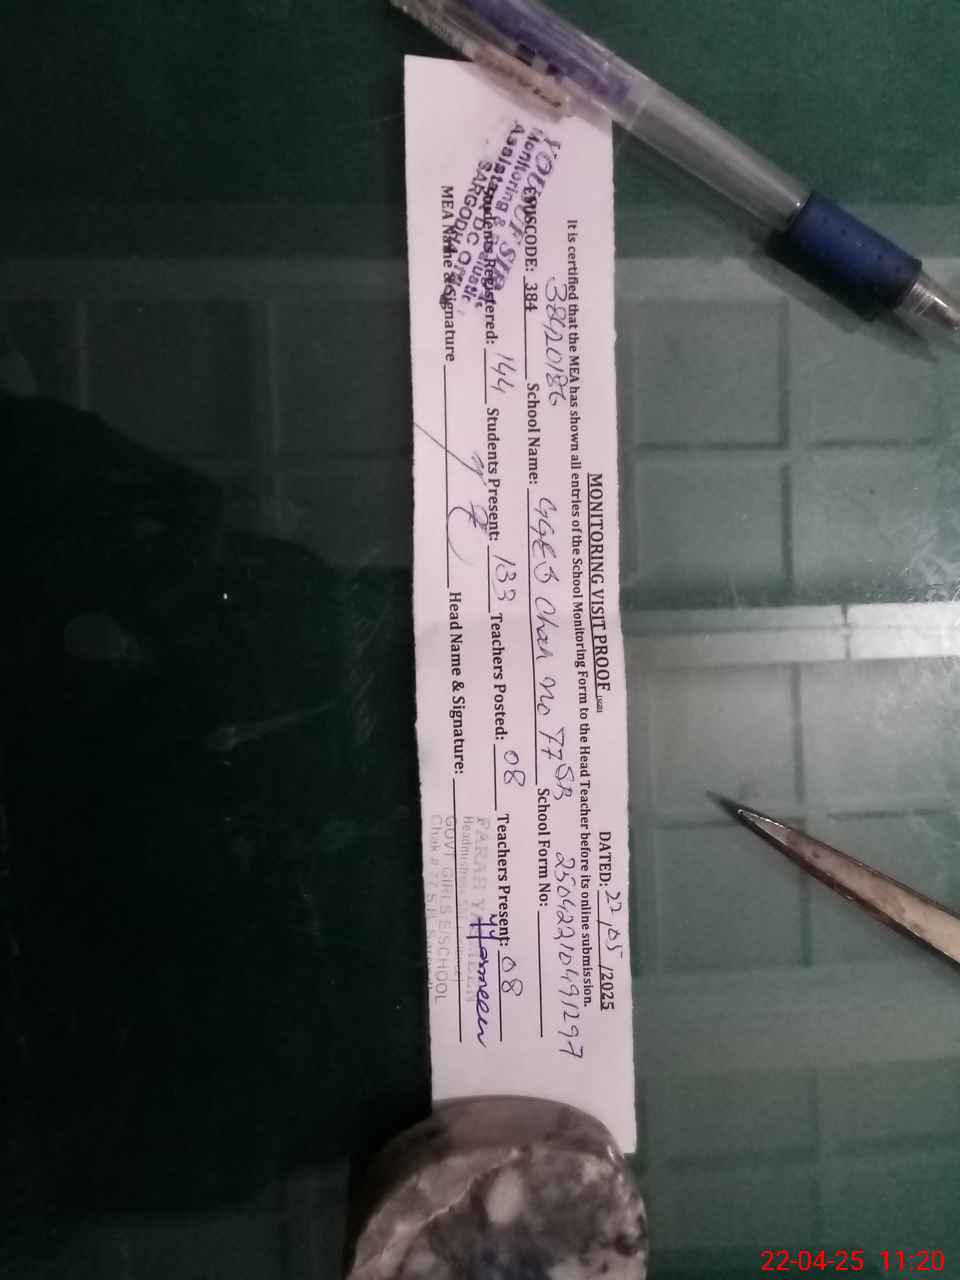 MONITORING VISIT PROOF
DATED: 22/05/2025
It is certified that the MEA has shown all entries of the School Monitoring Form to the Head Teacher before its online submission.
38420186 25042210491297
EMISCODE: 384 School Name: GGES Chak No 77 SB School Form No:
Students Registered: 144 Students Present: 133 Teachers Posted: 08 Teachers Present: 08
MEA Name & Signature Head Name & Signature:
Monitoring &
SARGODHA
FARAH YASMEEN
GOVT GIRLS E/SCHOOL
22-04-25 11:20